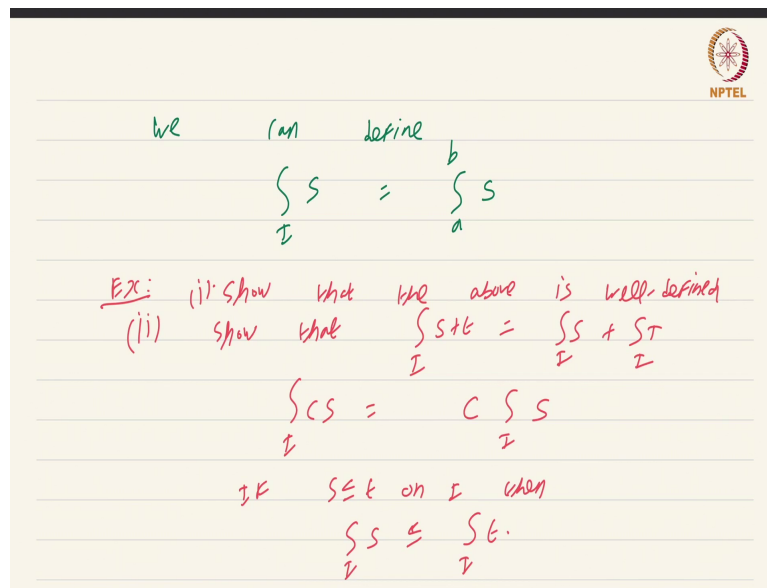 NPTEL
we can define
∫_I s = ∫_a^b s
Ex: (i). show that the above is well-defined
(ii) show that ∫_I s+t = ∫_I s + ∫_I T
∫_I cs = c ∫_I s
If s ≤ t on I then
∫_I s ≤ ∫_I t.